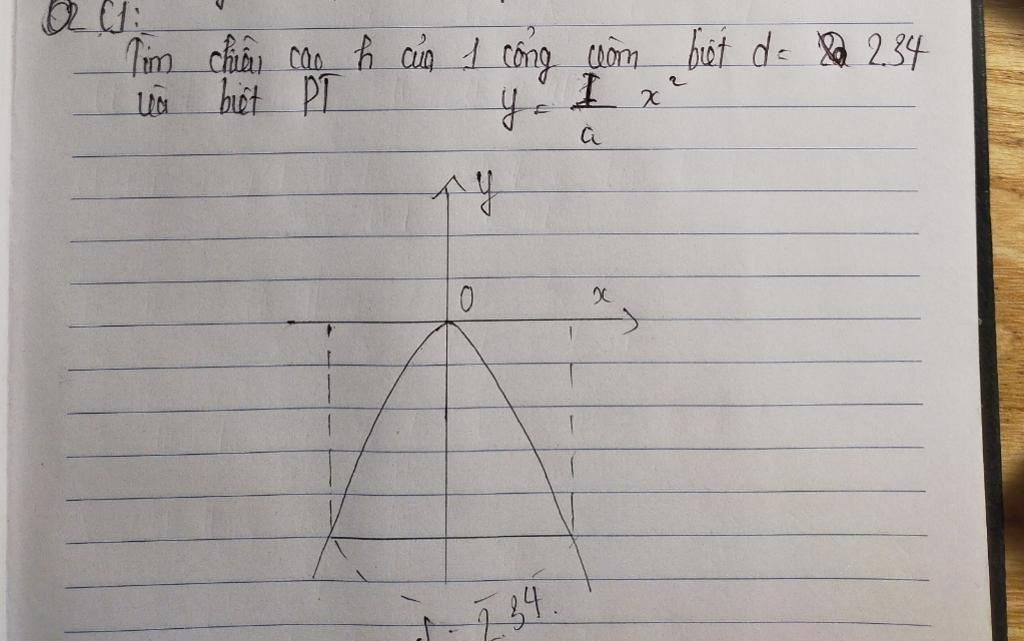 C1:
Tìm chiều cao h của 1 cổng vòm biết d= 234
và biết PT y = 1/a x²
y
O x
d = 234.